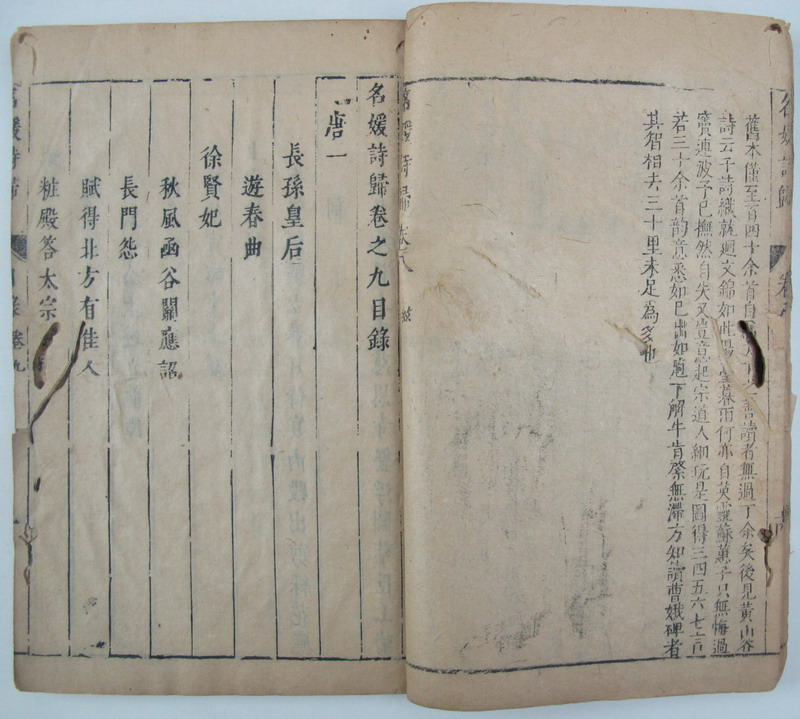 舊本僅至百四十余首自
讀者無過丁余矣後見黃山谷
詩云千詩織就廻文錦如此陽臺暮雨何亦自英靈蘇蕙子只無悔過
竇連波予已撫然自失又豈意起宗道人細玩是圖得三四五六七言
若三十余首韵意悉如已出如庖丁解牛肯綮無滯方知讀曹娥碑者
其智相去三十里未足為多也
名媛詩歸卷之九目錄
唐一
長孫皇后
遊春曲
徐賢妃
秋風函谷關應詔
長門怨
賦得北方有佳人
粧殿答太宗
名媛詩歸
目錄卷九